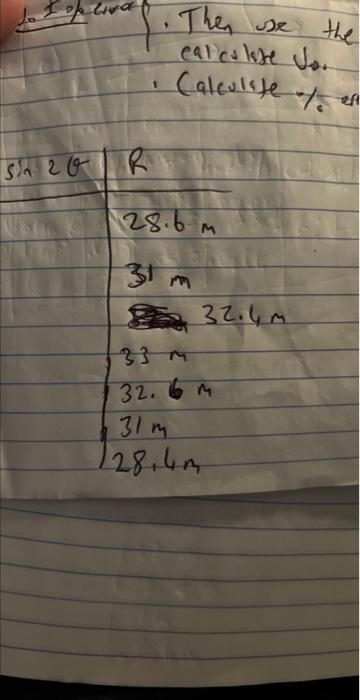 . Then use the
calculate V₀.
. Calculate %
sin 2θ R
28.6 m
31 m
32.4 m
33 m
32.6 m
31 m
28.4 m